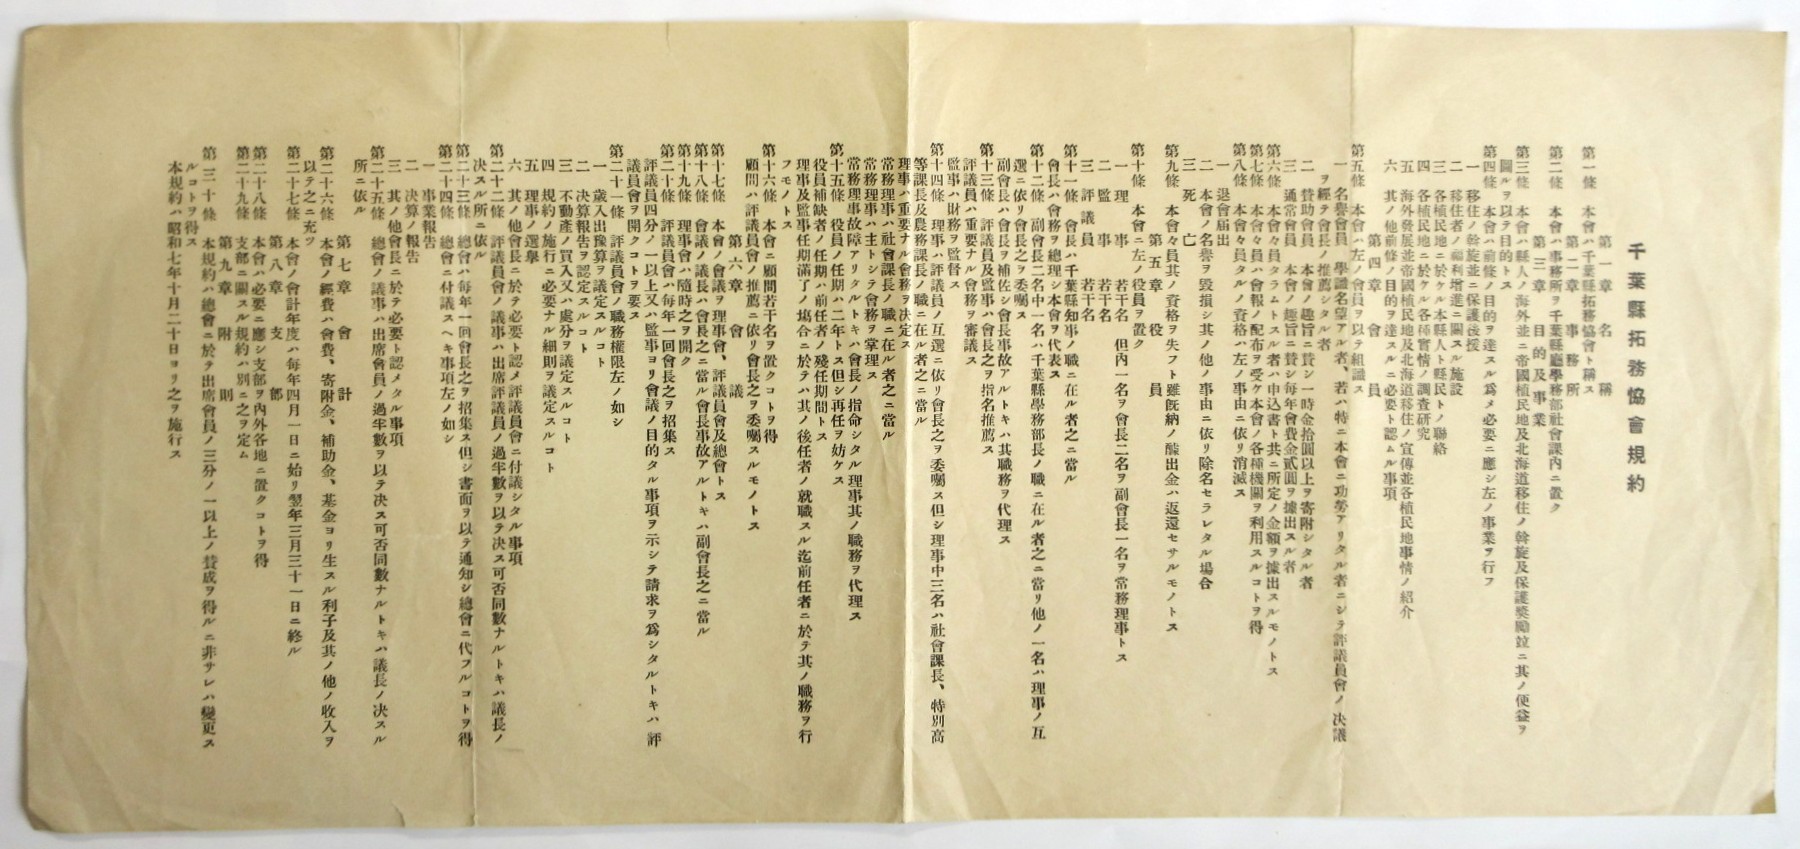 千葉縣拓務協會規約
第一章　名稱
第一條　本會ハ千葉縣拓務協會ト稱ス
第二章　事務所
第二條　本會ハ事務所ヲ千葉縣廳學務部社會課內ニ置ク
第三章　目的及事業
第三條　本會ハ縣人ノ海外並ニ帝國植民地及北海道移住ノ斡旋及保護奬勵竝ニ其ノ便益ヲ
圖ルヲ以テ目的トス
第四條　本會ハ前條ノ目的ヲ達スル爲メ必要ニ應シ左ノ事業ヲ行フ
一　移住ノ斡旋並ニ保護後援
二　移住者ノ福利增進ニ關スル施設
三　各植民地ニ於ケル本縣人ト縣民トノ聯絡
四　各植民地ニ於ケル各種實情ノ調査硏究
五　海外發展並帝國植民地及北海道移住ノ宣傳並各植民地事情ノ紹介
六　其ノ他前條ノ目的ヲ達スルニ必要ト認ムル事項
第四章　會員
第五條　本會ハ左ノ會員ヲ以テ組織ス
一　名譽會員　學識名望アル者、若ハ特ニ本會ニ功勞アリタル者ニシテ評議員會ノ決議
ヲ經テ會長ノ推薦シタル者
二　贊助會員　本會ノ趣旨ニ贊シ一時金拾圓以上ヲ寄附シタル者
三　通常會員　本會ノ趣旨ニ贊シ每年會費金貳圓ヲ據出スル者
第六條　本會々員タラムトスル者ハ申込書ト共ニ所定ノ金額ヲ據出スルモノトス
第七條　本會々員ハ會報ノ配布ヲ受ケ本會ノ各種機關ヲ利用スルコトヲ得
第八條　本會々員タルノ資格ハ左ノ事由ニ依リ消滅ス
一　退會屆出
二　本會ノ名譽ヲ毀損シ其ノ他ノ事由ニ依リ除名セラレタル場合
三　死亡
第九條　本會々員其ノ資格ヲ失フト雖旣納ノ醵出金ハ返還セサルモノトス
第五章　役員
第十條　本會ニ左ノ役員ヲ置ク
一　理事　若干名　但內一名ヲ會長二名ヲ副會長一名ヲ常務理事トス
二　監事　若干名
三　評議員　若干名
第十一條　會長ハ千葉縣知事ノ職ニ在ル者之ニ當ル
會長ハ會務ヲ總理シ本會ヲ代表ス
第十二條　副會長二名中一名ハ千葉縣學務部長ノ職ニ在ル者之ニ當リ他ノ一名ハ理事ノ互
選ニ依リ會長之ヲ委囑ス
副會長ハ會長ヲ補佐シ會長事故アルトキハ其職務ヲ代理ス
第十三條　評議員及監事ハ會長之ヲ指名推薦ス
評議員ハ重要ナル會務ヲ審議ス
監事ハ財務ヲ監督ス
第十四條　理事ハ評議員ノ互選ニ依リ會長之ヲ委囑ス但シ理事中三名ハ社會課長、特別高
等課長及農務課長ノ職ニ在ル者之ニ當ル
理事ハ重要ナル會務ヲ決定ス
常務理事ハ社會課長ノ職ニ在ル者之ニ當ル
常務理事ハ主トシテ會務ヲ掌理ス
常務理事故障アリタルトキハ會長ノ指命シタル理事其ノ職務ヲ代理ス
第十五條　役員ノ任期ハ二年トス但シ再任ヲ妨ケス
役員補缺者ノ任期ハ前任者ノ殘任期間トス
理事及監事任期滿了ノ塲合ニ於テハ其ノ後任者ノ就職スル迄前任者ニ於テ其ノ職務ヲ行
フモノトス
第十六條　本會ニ顧問若干名ヲ置クコトヲ得
顧問ハ評議員會ノ推薦ニ依リ會長之ヲ委囑スルモノトス
第六章　會議
第十七條　本會ノ會議ヲ理事會、評議員會及總會トス
第十八條　會議ノ議長ハ會長之ニ當ル會長事故アルトキハ副會長之ニ當ル
第十九條　理事會ハ隨時之ヲ開ク
第二十條　評議員會ハ每年一回會長之ヲ招集ス
評議員四分ノ一以上又ハ監事ヨリ會議ノ目的タル事項ヲ示シテ請求ヲ爲シタルトキハ評
議員會ヲ開クコトヲ要ス
第二十一條　評議員會ノ職務權限左ノ如シ
一　歲入出豫算ヲ議定スルコト
二　決算報告ヲ認定スルコト
三　不動產ノ買入又ハ處分ヲ議定スルコト
四　規約ノ施行ニ必要ナル細則ヲ議定スルコト
五　理事ノ選擧
六　其ノ他會長ニ於テ必要ト認メ評議員會ニ付議シタル事項
第二十二條　評議員會ノ議事ハ出席評議員ノ過半數ヲ以テ決ス可否同數ナルトキハ議長ノ
決スル所ニ依ル
第二十三條　總會ハ每年一回會長之ヲ招集ス但シ書面ヲ以テ通知シ總會ニ代フルコトヲ得
第二十四條　總會ニ付議スヘキ事項左ノ如シ
一　事業報告
二　決算ノ報告
三　其ノ他會長ニ於テ必要ト認メタル事項
第二十五條　總會ノ議事ハ出席會員ノ過半數ヲ以テ決ス可否同數ナルトキハ議長ノ決スル
所ニ依ル
第七章　會計
第二十六條　本會ノ經費ハ會費、寄附金、補助金、基金ヨリ生スル利子及其ノ他ノ收入ヲ
以テ之ニ充ツ
第二十七條　本會ノ會計年度ハ每年四月一日ニ始リ翌年三月三十一日ニ終ル
第八章　支部
第二十八條　本會ハ必要ニ應シ支部ヲ內外各地ニ置クコトヲ得
第二十九條　支部ニ關スル規約ハ別ニ之ヲ定ム
第九章　附則
第三十條　本規約ハ總會ニ於テ出席會員ノ三分ノ一以上ノ贊成ヲ得ルニ非サレハ變更ス
ルコトヲ得ス
本規約ハ昭和七年十月二十日ヨリ之ヲ施行ス